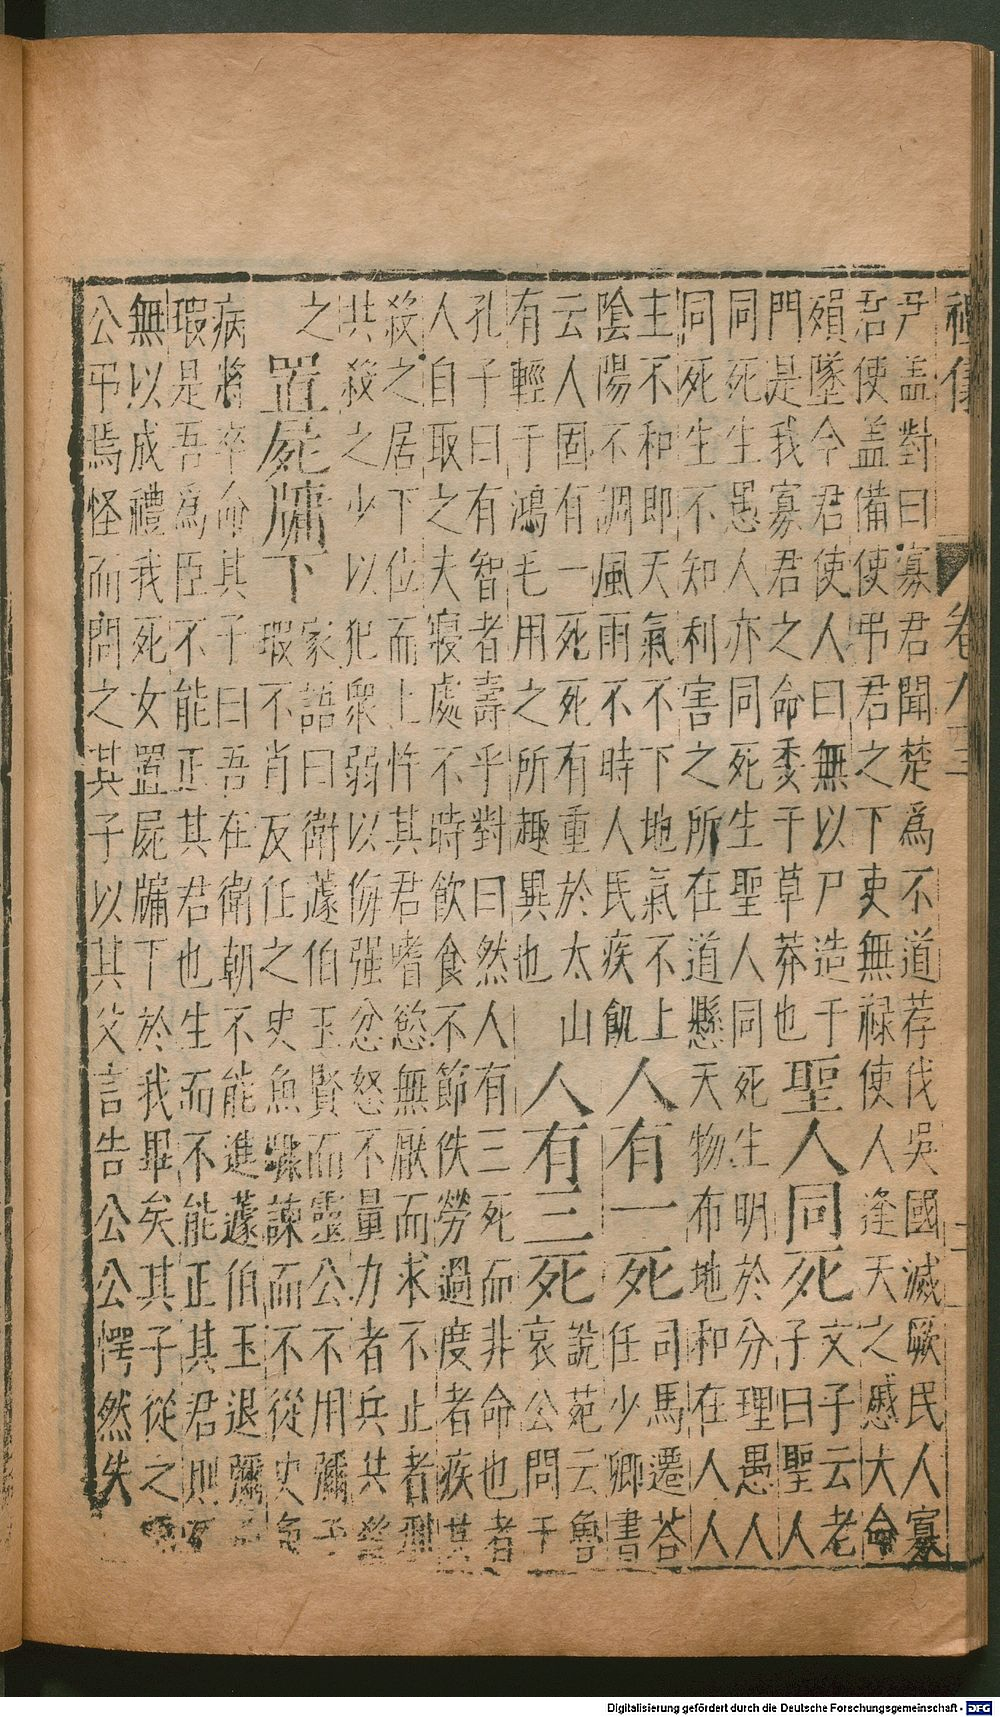 禮儀 卷八 二
尹盖對曰寡君聞楚爲不道荐伐吳國滅厥民人寡
君使盖備使弔君之下吏無祿使人逢天之慼大命
殞墜今君使人曰無以尸造于
門是我寡君之命委于草莽也
聖人同死
文子云老
子曰聖人
同死生愚人亦同死生聖人同死生明於分理愚人
同死生不知利害之所在道懸天物布地和在人人
主不和即天氣不下地氣不上
陰陽不調風雨不時人民疾飢
人有一死
司馬遷荅
任少卿書
云人固有一死死有重於太山
有輕于鴻毛用之所趣異也
人有三死
說苑云魯
哀公問于
孔子曰有智者壽乎對曰然人有三死而非命也者
人自取之夫寢處不時飲食不節佚勞過度者疾其
殺之居下位而上忤其君嗜慾無厭而求不止者刑
共殺之少以犯衆弱以侮强忿怒不量力者兵共殺
之
置屍牖下
家語曰衛蘧伯玉賢而靈公不用彌子
瑕不肖反任之史魚驟諫而不從史魚
病將卒命其子曰吾在衛朝不能進蘧伯玉退彌子
瑕是吾爲臣不能正其君也生而不能正其君則死
無以成禮我死女置屍牖下於我畢矣其子從之靈
公弔焉怪而問之其子以其父言告公公愕然失
Digitalisierung gefördert durch die Deutsche Forschungsgemeinschaft - DFG